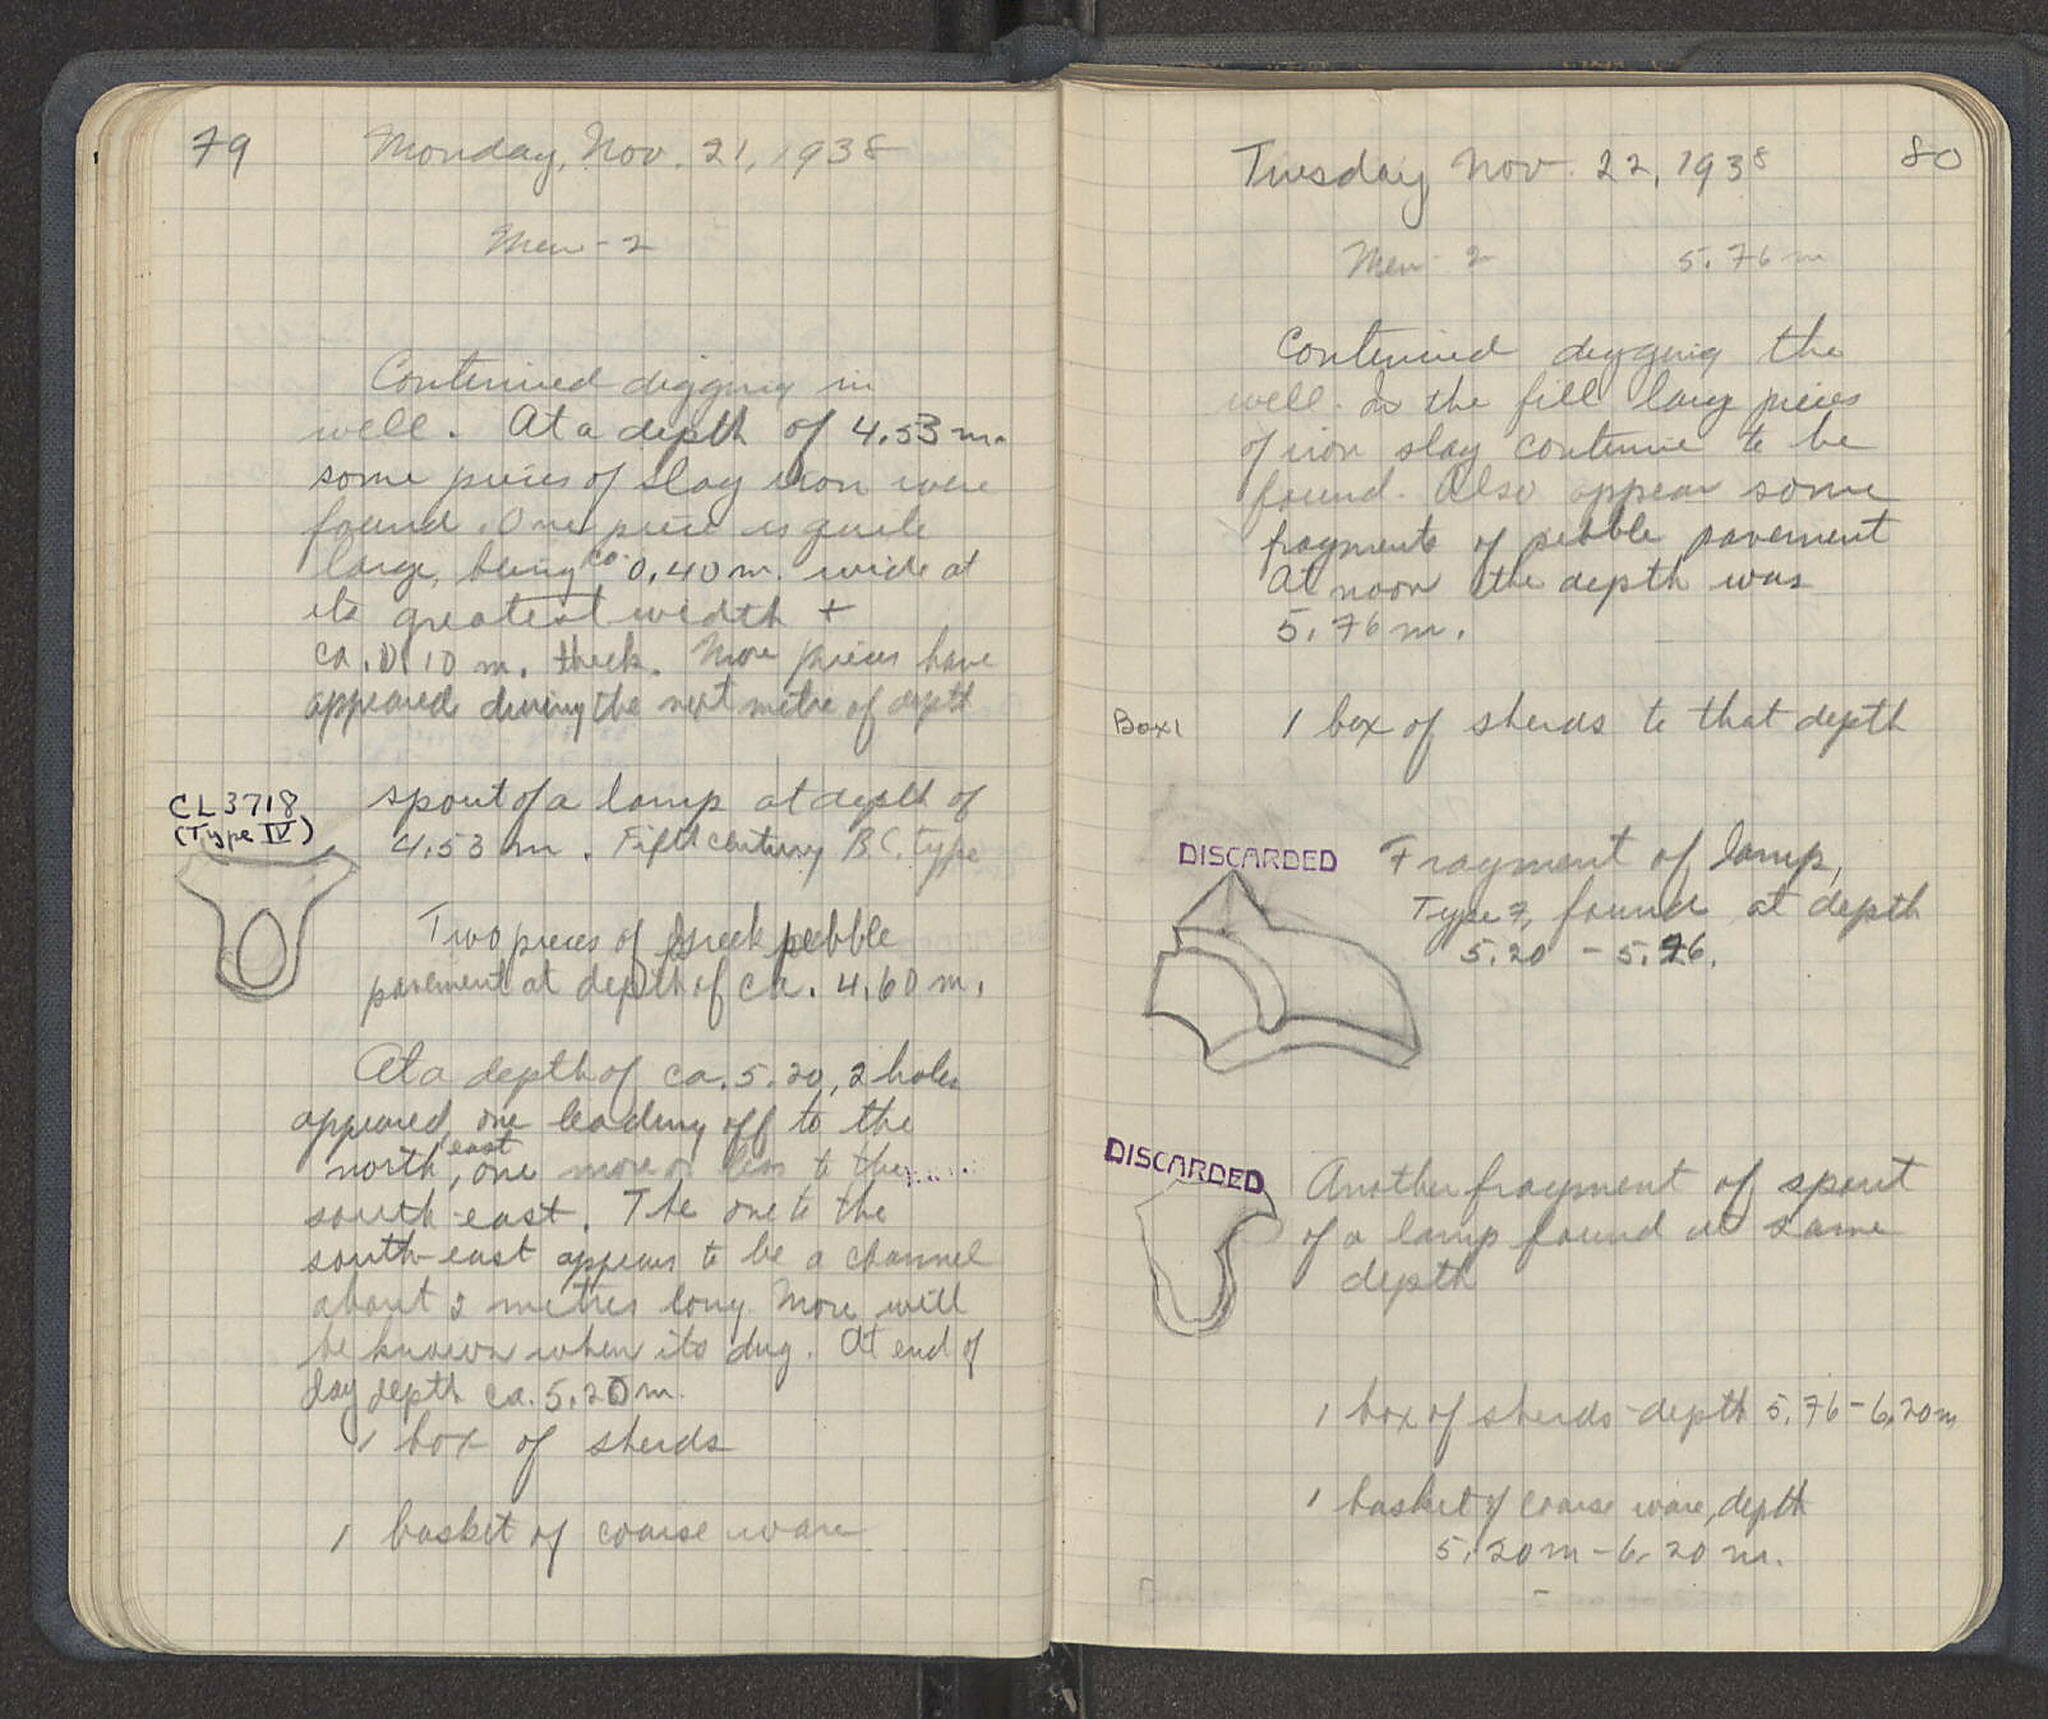 79 Monday, Nov. 21, 1938
Men - 2
Continued digging in
well. At a depth of 4.53 m.
some pieces of slag iron were
found. One piece is quite
large, being ca. 0.40 m. wide at
its greatest width +
ca. 0.10 m. thick. More pieces have
appeared during the next metre of depth
CL 3718
(Type IV)
spout of a lamp at depth of
4.53 m. Fifth century B.C. type
Two pieces of Greek pebble
pavement at depth of ca. 4.60 m.
At a depth of ca. 5.20, 2 holes
appeared, one leading off to the
north east, one more or less to the
south-east. The one to the
south-east appears to be a channel
about 2 metres long. More will
be known when its dug. At end of
day depth ca. 5.20 m.
1 box of sherds
1 basket of coarse ware
Tuesday Nov. 22, 1938 80
Men 2 5.76 m
Continued digging the
well. In the fill large pieces
of iron slag continue to be
found. Also appear some
fragments of pebble pavement
At noon the depth was
5.76 m.
Box 1 1 box of sherds to that depth
DISCARDED
Fragment of lamp,
Type 7, found at depth
5.20 - 5.76.
DISCARDED
Another fragment of spout
of a lamp found at same
depth
1 box of sherds - depth 5.76 - 6.20 m
1 basket of coarse ware, depth
5.20 m - 6.20 m.